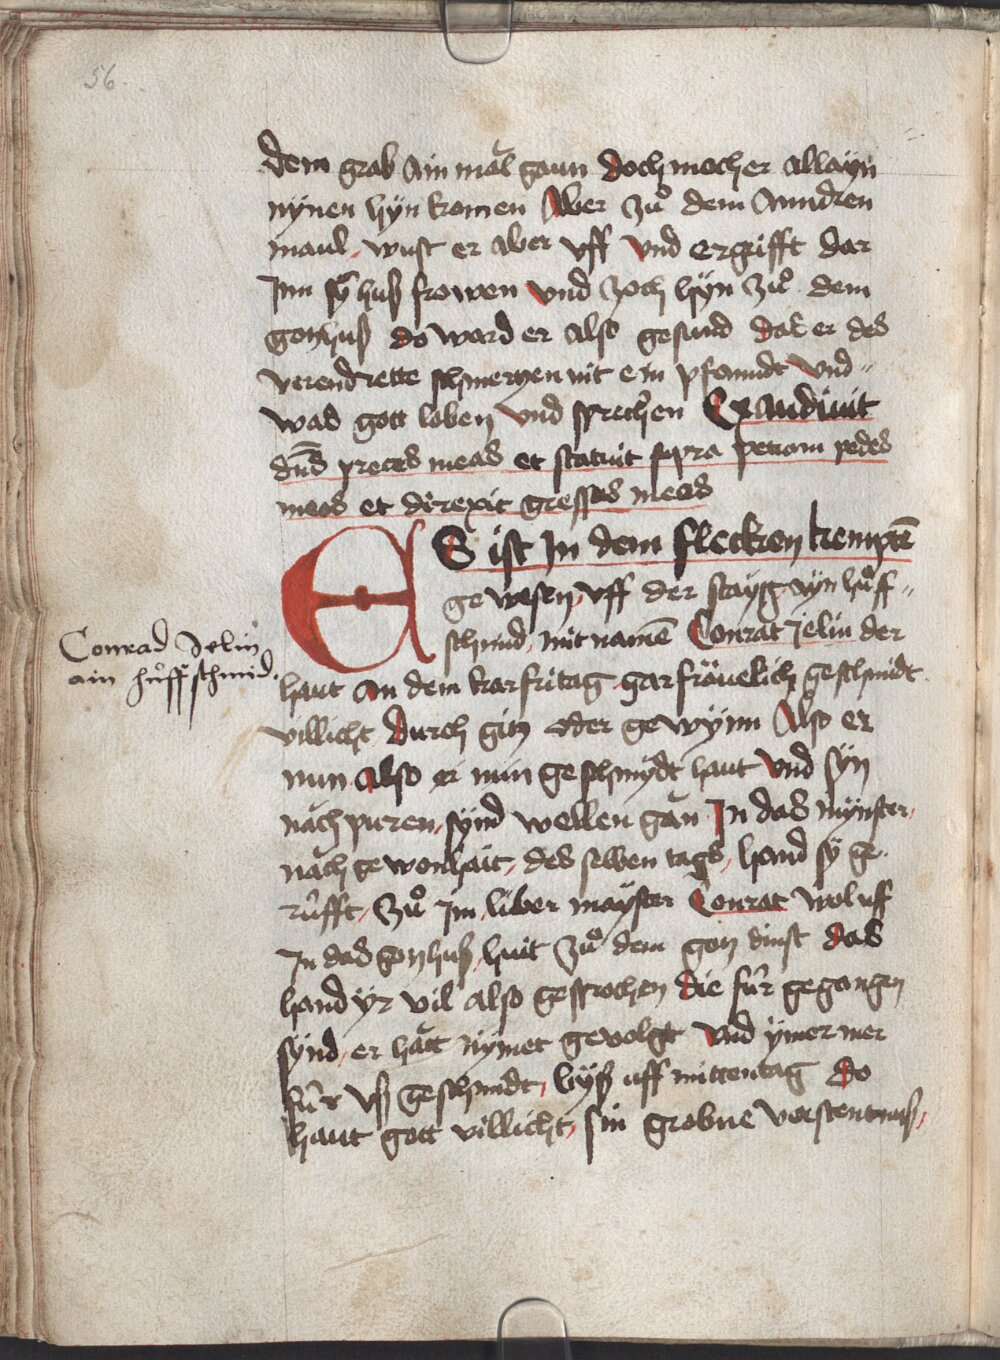 56.
dem grab Ain mal gaun doch mocher allayn
nynen hyn komen Aber zuͦ dem Anndren
maul, wust er aber vff vnd ergrifft dar
Inn sÿ huß frowen vnd zoch hyn zuͦ dem
gotzhuß do ward er also gesund das er des
schmertzen nit ein pfanndt vnd
was gott loben vnd sprechen Exaudiuit
dn̄s preces meas et statuit supra petram pedes
meos et direxit gressus meos
ES ist In dem flecken kempte͂
gewesen, vff der staÿg aÿn huͦff
schmid, mit name͂ Conrat Jelin der
Conrad Jelin
ain huͦffschmid.
haut An dem karfritag gar fräuelich geschmidt
villicht durch gitz oder gewÿnn Also er
nun also er nun geschmÿdt haut vnd sÿn
nachpuren, sÿnd wellen gan In das mÿnster,
nach gewonhait, des selben tags, hand sÿ ge
rufft, zuͦ Im, liber maÿster Conrat wol uff
In das gotzhuß, hüt zuͦ dem gotz dinst das
hand yr vil also gesprochen die für gegangen
sÿnd, er hatt nÿmet gevolgt vnd ÿmer mer
für vß geschmidt, byß uff mittentag do
haut gott villicht, sin grobne verstentnuß,